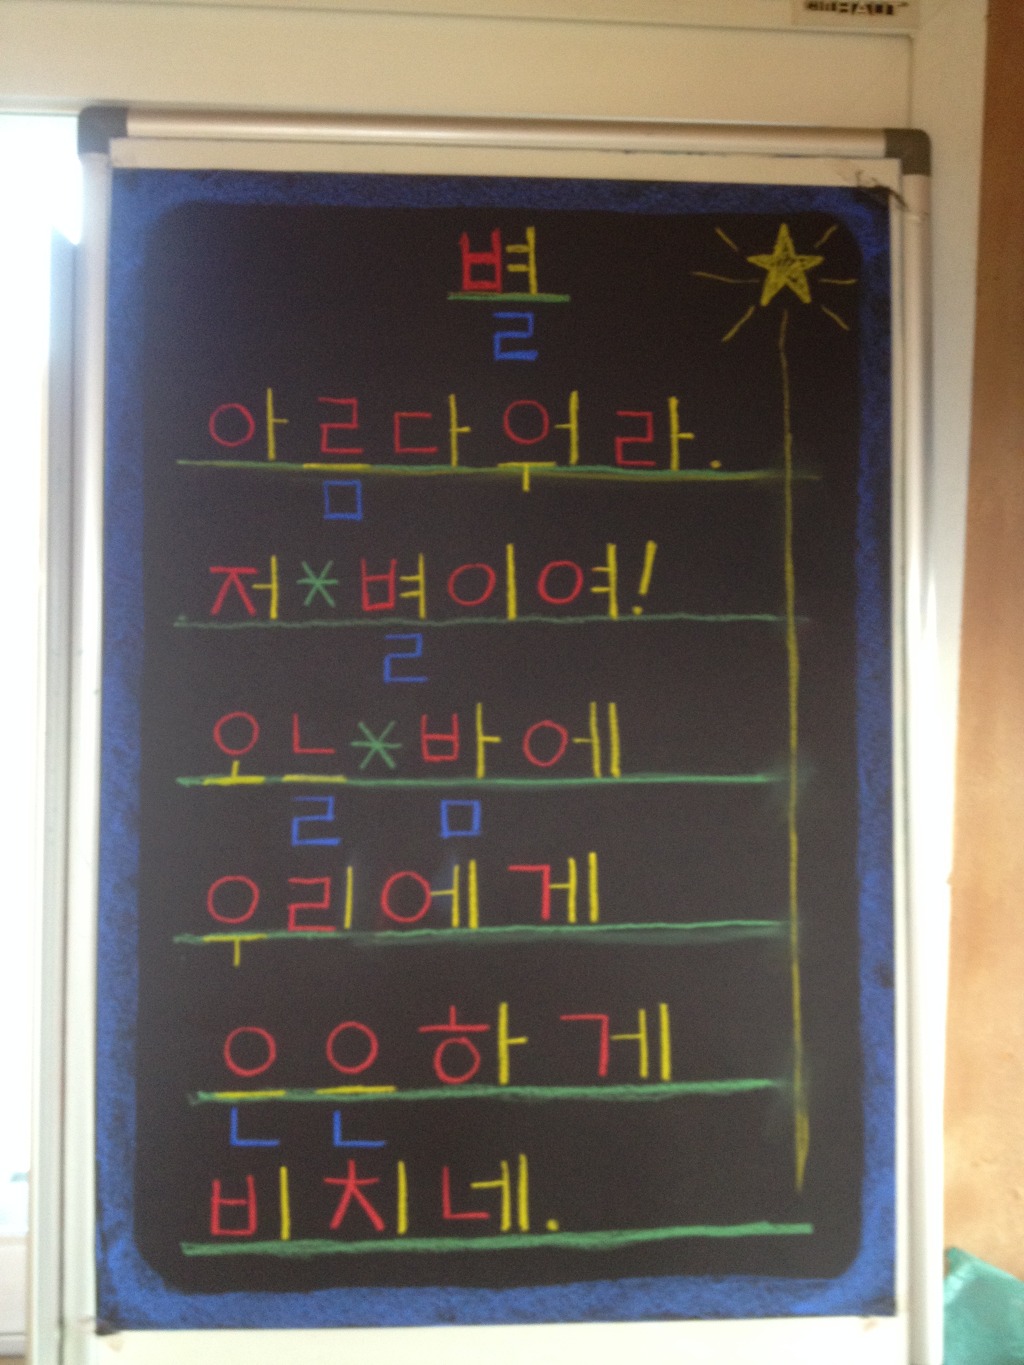 별
아름다워라.
저*별이여!
오늘*밤에
우리에게
은은하게
비치네.